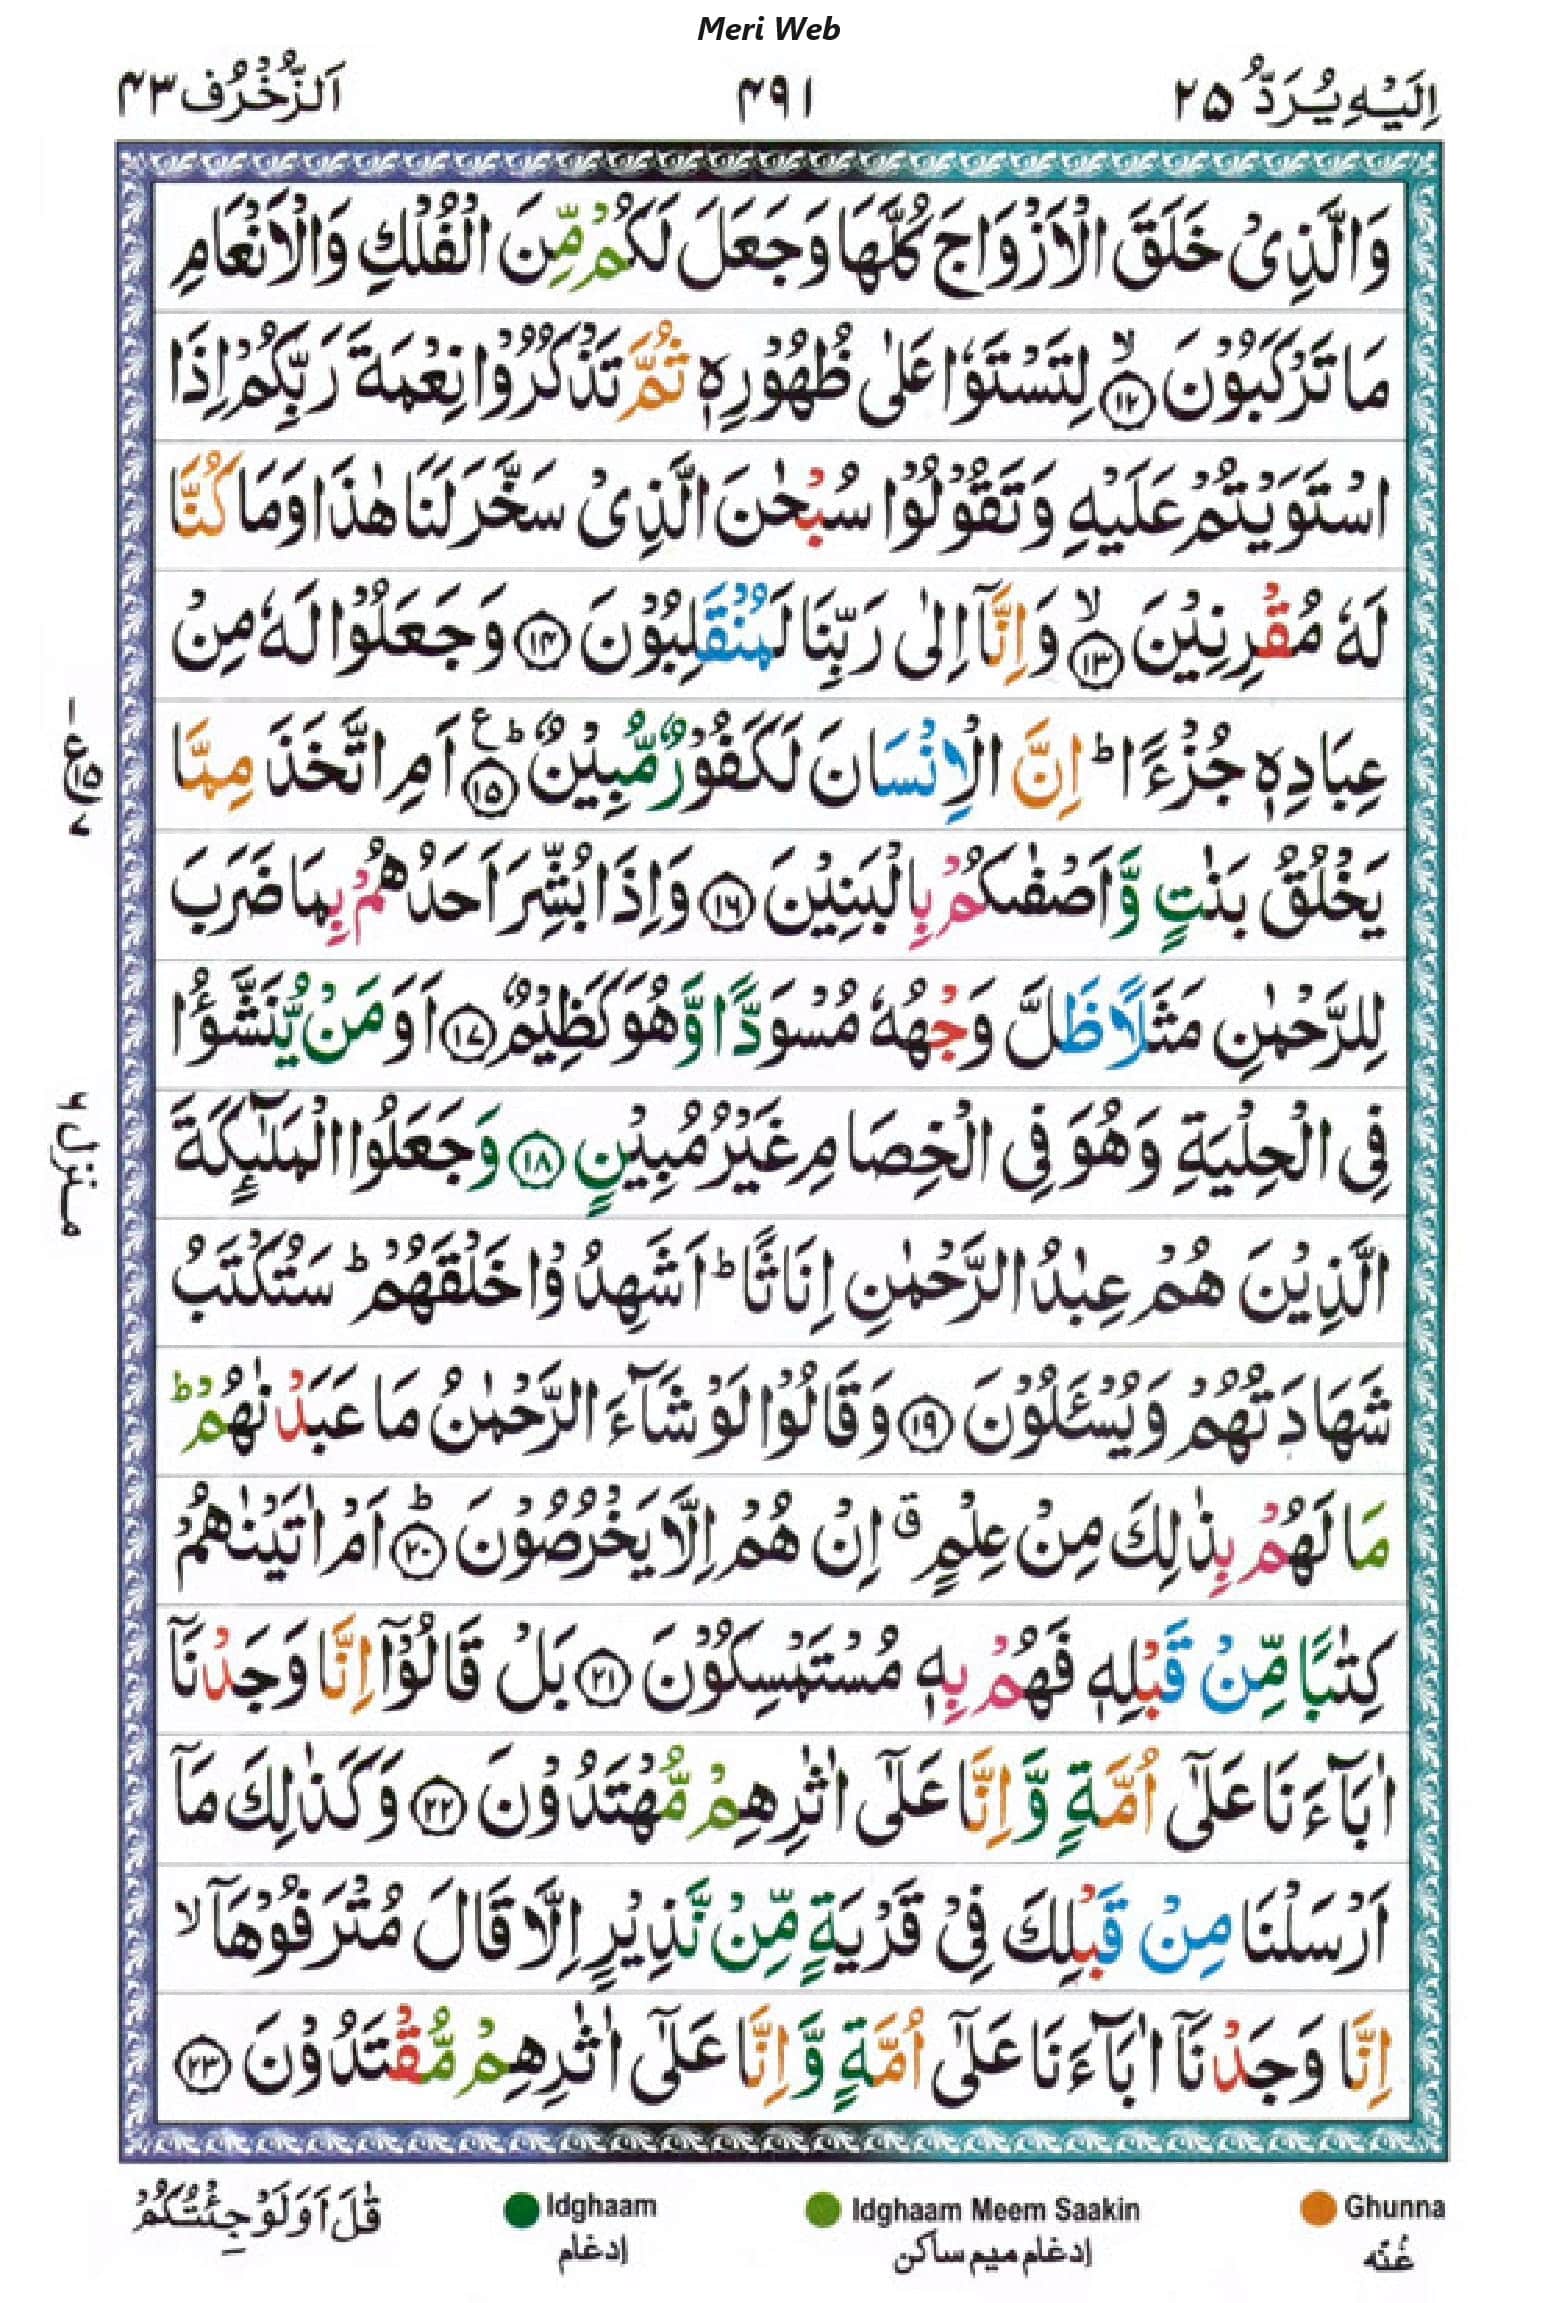 Meri Web
اِلَيْهِ يُرَدُّ ٢٥
٤٩١
اَلزُّخْرُف ٤٣
وَالَّذِىْ خَلَقَ الْاَزْوَاجَ كُلَّهَا وَجَعَلَ لَكُمْ مِّنَ الْفُلْكِ وَالْاَنْعَامِ
مَا تَرْكَبُوْنَ ۙ‏﴿١٢﴾ لِتَسْتَوٗا عَلٰى ظُهُوْرِهٖ ثُمَّ تَذْكُرُوْا نِعْمَةَ رَبِّكُمْ اِذَا
اسْتَوَيْتُمْ عَلَيْهِ وَتَقُوْلُوْا سُبْحٰنَ الَّذِىْ سَخَّرَ لَنَا هٰذَا وَمَا كُنَّا
لَهٗ مُقْرِنِيْنَ ۙ‏﴿١٣﴾ وَاِنَّاۤ اِلٰى رَبِّنَا لَمُنْقَلِبُوْنَ ﴿١٤﴾ وَجَعَلُوْا لَهٗ مِنْ
عِبَادِهٖ جُزْءًا ؕ اِنَّ الْاِنْسَانَ لَكَفُوْرٌ مُّبِيْنٌ ؕ ع ﴿١٥﴾ اَمِ اتَّخَذَ مِمَّا
يَخْلُقُ بَنٰتٍ وَّاَصْفٰىكُمْ بِالْبَنِيْنَ ﴿١٦﴾ وَاِذَا بُشِّرَ اَحَدُهُمْ بِمَا ضَرَبَ
لِلرَّحْمٰنِ مَثَلًا ظَلَّ وَجْهُهٗ مُسْوَدًّا وَّهُوَ كَظِيْمٌ ﴿١٧﴾ اَوَمَنْ يُّنَشَّؤُا
فِى الْحِلْيَةِ وَهُوَ فِى الْخِصَامِ غَيْرُ مُبِيْنٍ ﴿١٨﴾ وَجَعَلُوا الْمَلٰٓئِكَةَ
الَّذِيْنَ هُمْ عِبٰدُ الرَّحْمٰنِ اِنَاثًا ؕ اَشَهِدُوْا خَلْقَهُمْ ؕ سَتُكْتَبُ
شَهَادَتُهُمْ وَيُسْئَلُوْنَ ﴿١٩﴾ وَقَالُوْا لَوْ شَآءَ الرَّحْمٰنُ مَا عَبَدْنٰهُمْ ؕ
مَا لَهُمْ بِذٰلِكَ مِنْ عِلْمٍ ۗ اِنْ هُمْ اِلَّا يَخْرُصُوْنَ ؕ ﴿٢٠﴾ اَمْ اٰتَيْنٰهُمْ
كِتٰبًا مِّنْ قَبْلِهٖ فَهُمْ بِهٖ مُسْتَمْسِكُوْنَ ﴿٢١﴾ بَلْ قَالُوْۤا اِنَّا وَجَدْنَاۤ
اٰبَآءَنَا عَلٰٓى اُمَّةٍ وَّاِنَّا عَلٰٓى اٰثٰرِهِمْ مُّهْتَدُوْنَ ﴿٢٢﴾ وَكَذٰلِكَ مَاۤ
اَرْسَلْنَا مِنْ قَبْلِكَ فِىْ قَرْيَةٍ مِّنْ نَّذِيْرٍ اِلَّا قَالَ مُتْرَفُوْهَاۤ ۙ
اِنَّا وَجَدْنَاۤ اٰبَآءَنَا عَلٰٓى اُمَّةٍ وَّاِنَّا عَلٰٓى اٰثٰرِهِمْ مُّقْتَدُوْنَ ﴿٢٣﴾
منزل ٦
Ghunna
غُنّه
Idghaam Meem Saakin
إدغام ميم ساكن
Idghaam
إدغام
قٰلَ اَوَلَوْ جِئْتُكُمْ